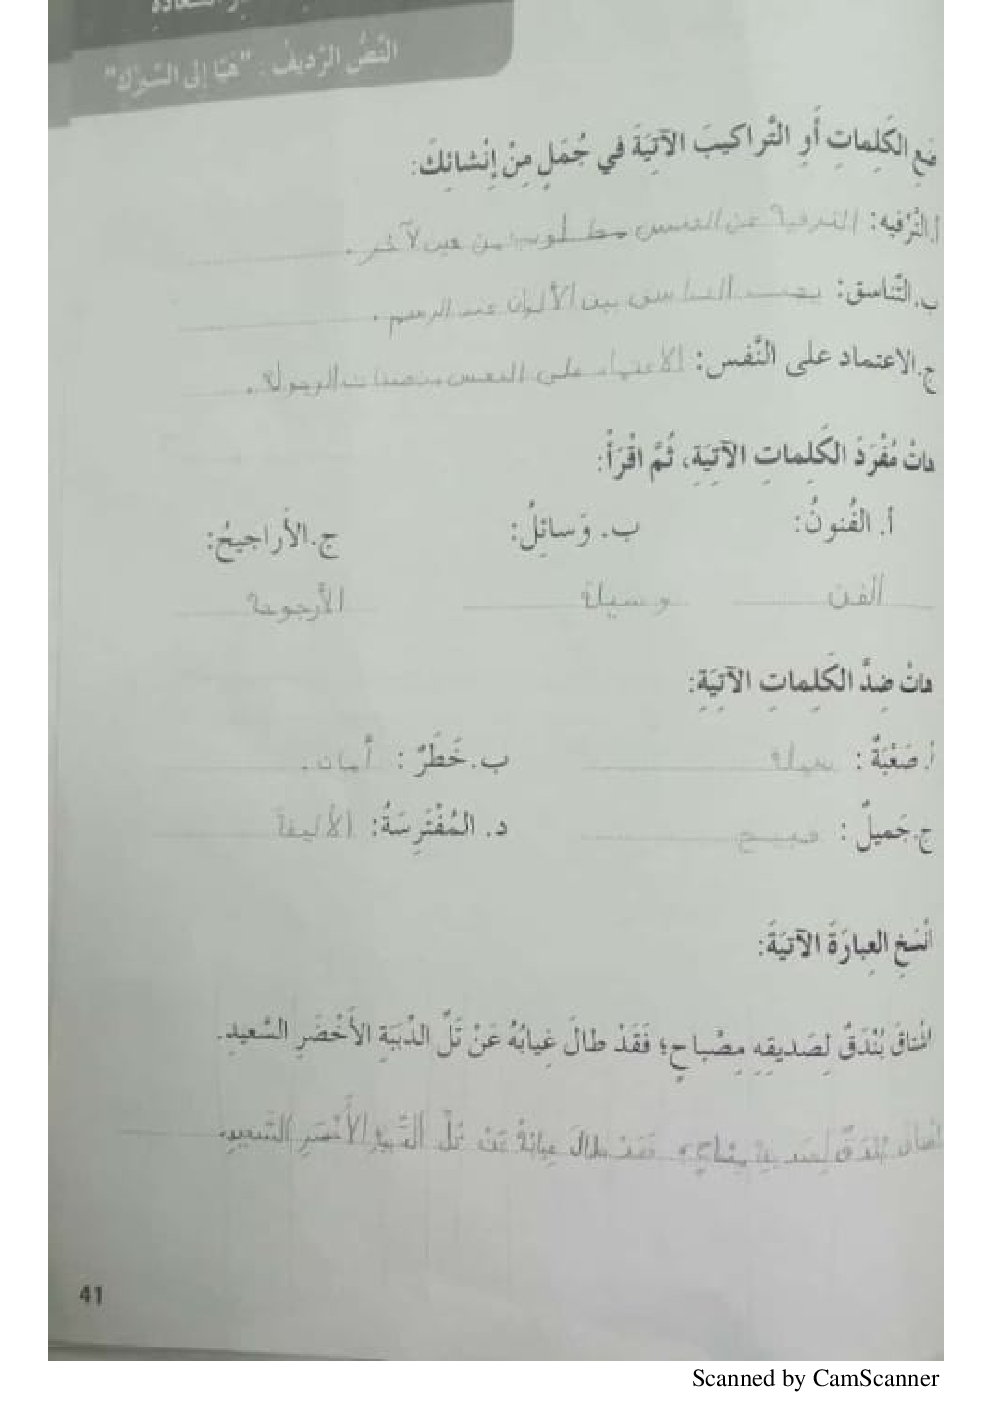 السَّعادَةِ
النَّصُّ الرَّديفُ: "هَيّا إلى السّيرْكِ"
ضَعِ الكَلِماتِ أَوِ التَّراكيبَ الآتِيَةَ في جُمَلٍ مِنْ إِنْشائِكَ:
أ.التَّرْفيه: الترفية عن النفس مطلوب من حين لآخر.
ب.التَّناسق: يجب التناسق بين الألوان عند الرسم.
ج.الاعتماد على النَّفس: الاعتماد على النفس من صفات الرجولة.
هاتْ مُفْرَدَ الكَلِماتِ الآتِيَةِ، ثُمَّ اقْرَأْ:
أ. الفُنونُ: ب. وَسائِلُ: ج.الأَراجيحُ:
الفن وسيلة الأرجوحة
هاتْ ضِدَّ الكَلِماتِ الآتِيَةِ:
أ.صَعْبَةٌ: سهلة ب.خَطَرٌ: أمان.
ج.جَميلٌ: قبيح د. المُفْتَرِسَةُ: الأليفة
انْسَخِ العِبارَةَ الآتِيَةَ:
اشْتاقَ بُنْدُقٌ لِصَديقِهِ مِصْباحٍ؛ فَقَدْ طالَ غِيابُهُ عَنْ تَلِّ الدِّبَبَةِ الأَخْضَرِ السَّعيدِ.
بُنْدُقٌ لِصَديقِهِ فَقَدْ طالَ غِيابُهُ عَنْ تَلِّ الأَخْضَرِ السَّعيدِ.
41
Scanned by CamScanner